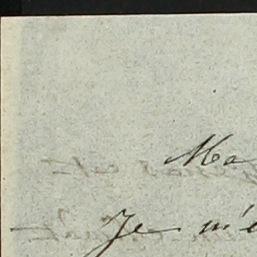 Ma
Je m'e